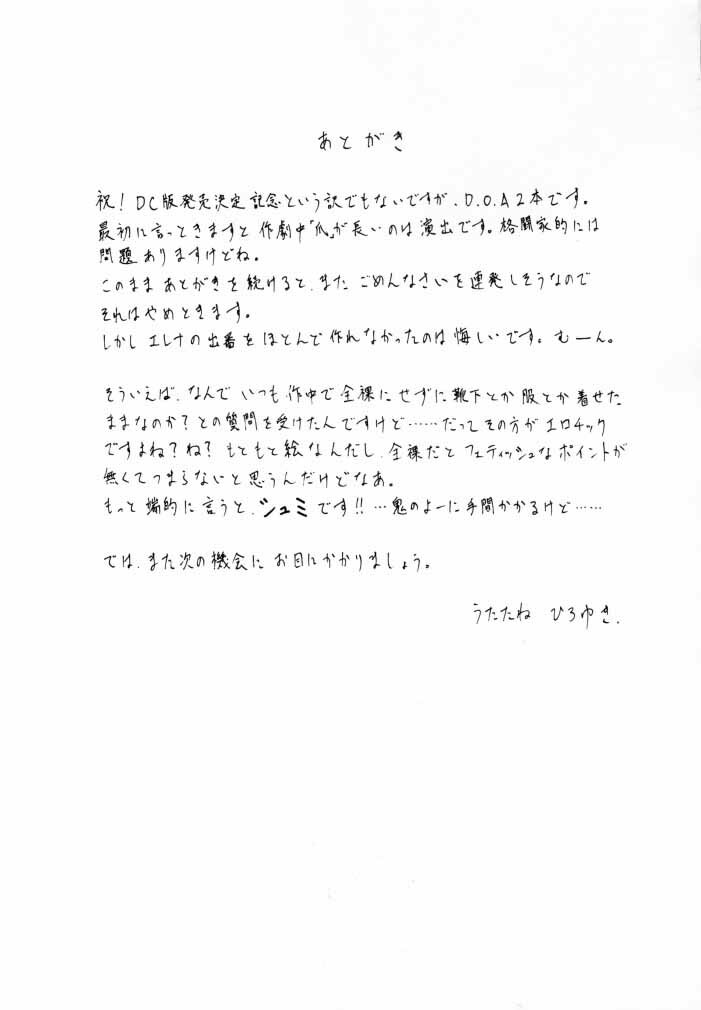 あとがき
祝！DC版発売決定記念という訳でもないですが、D.O.A2本です。
最初に言っときますと作劇中「爪」が長いのは演出です。格闘家的には
問題ありますけどね。
このままあとがきを続けると、またごめんなさいを連発しそうなので
それはやめときます。
しかしエレナの出番をほとんど作れなかったのは悔しいです。むーん。
そういえば、なんでいつも作中で全裸にせずに靴下とか服とか着せた
ままなのか？との質問を受けたんですけど……だってその方がエロチック
ですまね？ね？もともと絵なんだし、全裸だとフェティッシュなポイントが
無くてつまらないと思うんだけどなあ。
もっと端的に言うと、シュミです!!…鬼のよーに手間かかるけど……
では、また次の機会にお目にかかりましょう。
うたたねひろゆき.